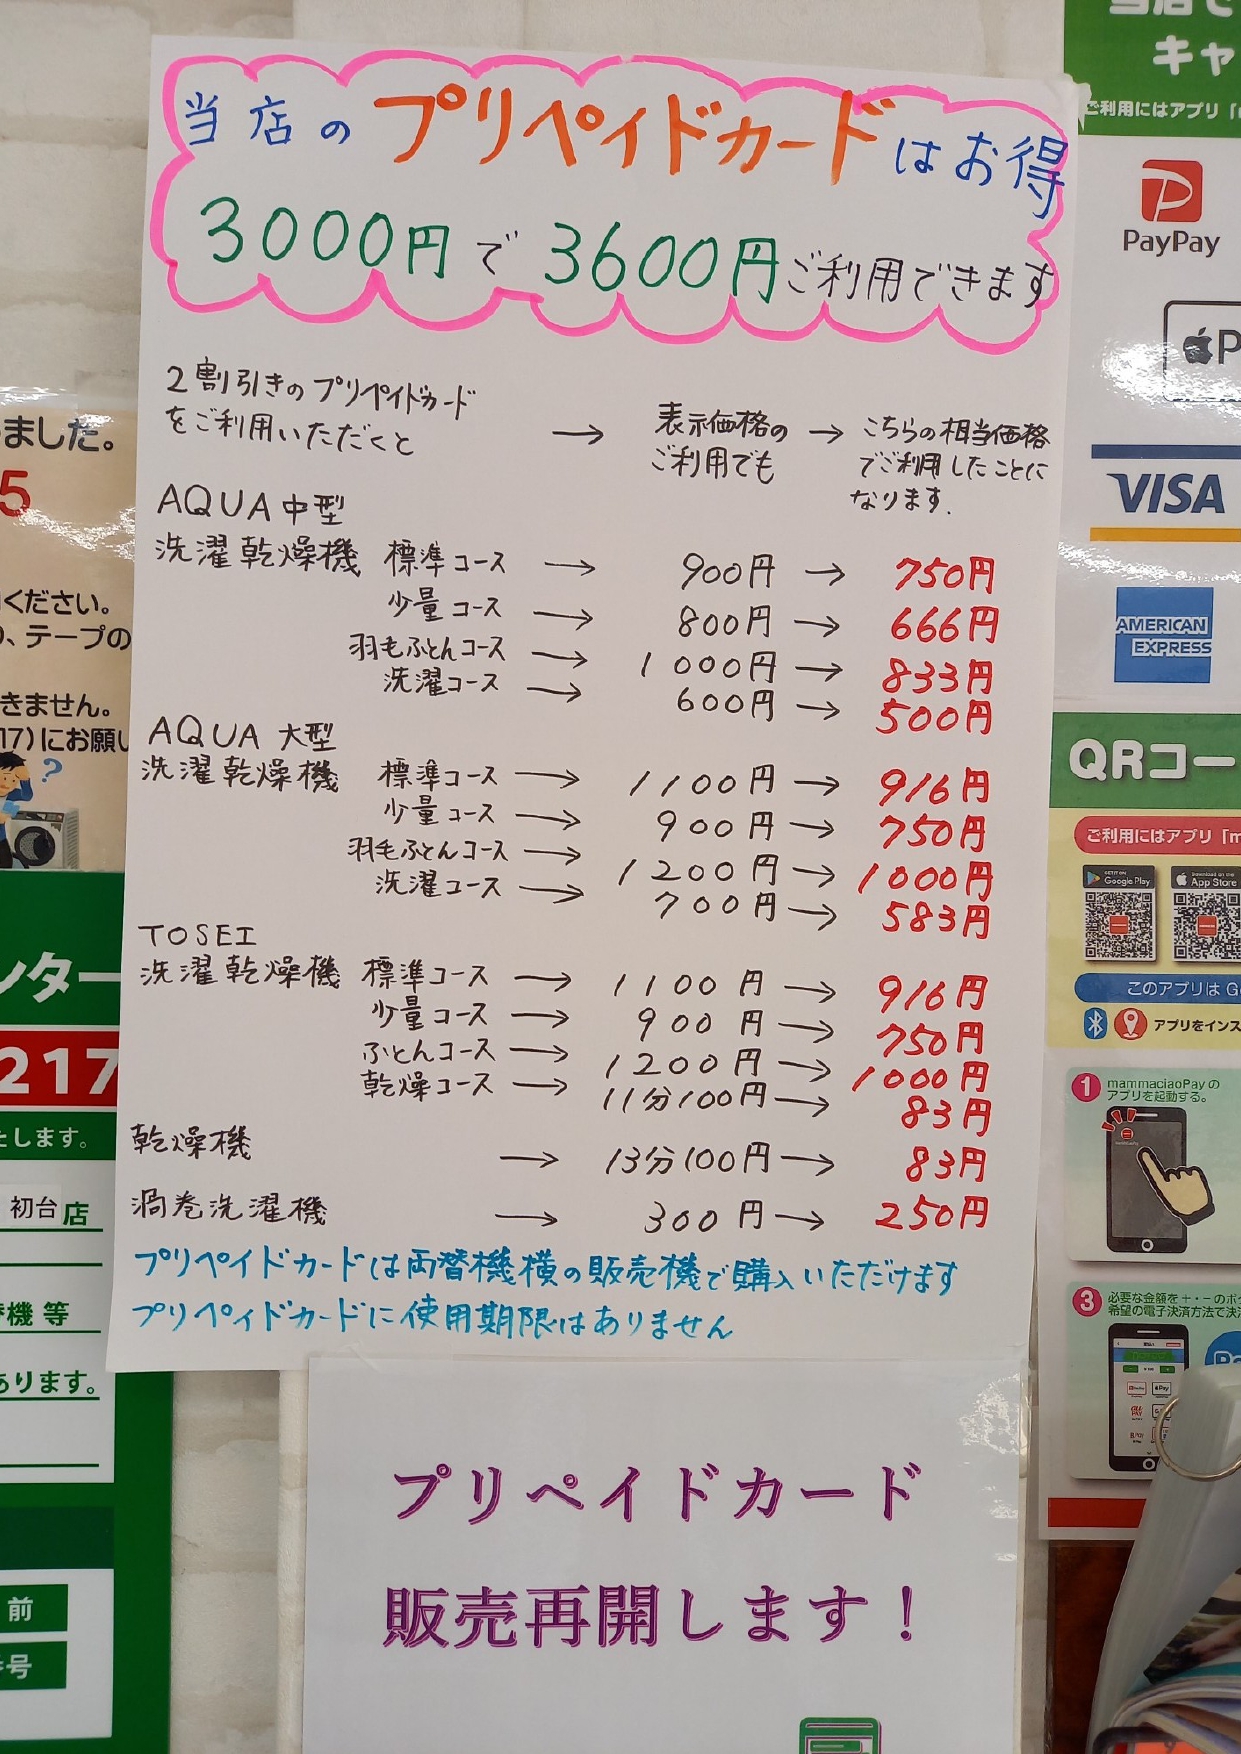 当店のプリペイドカードはお得
3000円で3600円ご利用できます
2割引きのプリペイドカード
をご利用いただくと
→ 表示価格の
ご利用でも
→ こちらの相当価格
でご利用したことに
なります.
AQUA中型
洗濯乾燥機 標準コース → 900円 → 750円
少量コース → 800円 → 666円
羽毛ふとんコース → 1000円 → 833円
洗濯コース → 600円 → 500円
AQUA 大型
洗濯乾燥機 標準コース → 1100円 → 916円
少量コース → 900円 → 750円
羽毛ふとんコース → 1200円 → 1000円
洗濯コース → 700円 → 583円
TOSEI
洗濯乾燥機 標準コース → 1100円 → 916円
少量コース → 900円 → 750円
ふとんコース → 1200円 → 1000円
乾燥コース → 11分100円 → 83円
乾燥機 → 13分100円 → 83円
渦巻洗濯機 → 300円 → 250円
プリペイドカードは両替機横の販売機で購入いただけます
プリペイドカードに使用期限はありません
プリペイドカード
販売再開します！
ました。
5
ください。
、テープの
きません。
17)にお願い
?
ンター
217
たします。
初台店
機 等
あります。
前
号
当店で
キャ
ご利用にはアプリ「m
PayPay
VISA
AMERICAN
EXPRESS
QRコー
ご利用にはアプリ「m
GET IT ON
Google Play
Download on the
App Store
このアプリは G
アプリをインス
1 mammaciaoPayの
アプリを起動する。
3 必要な金額を＋・－のボタ
希望の電子決済方法で決